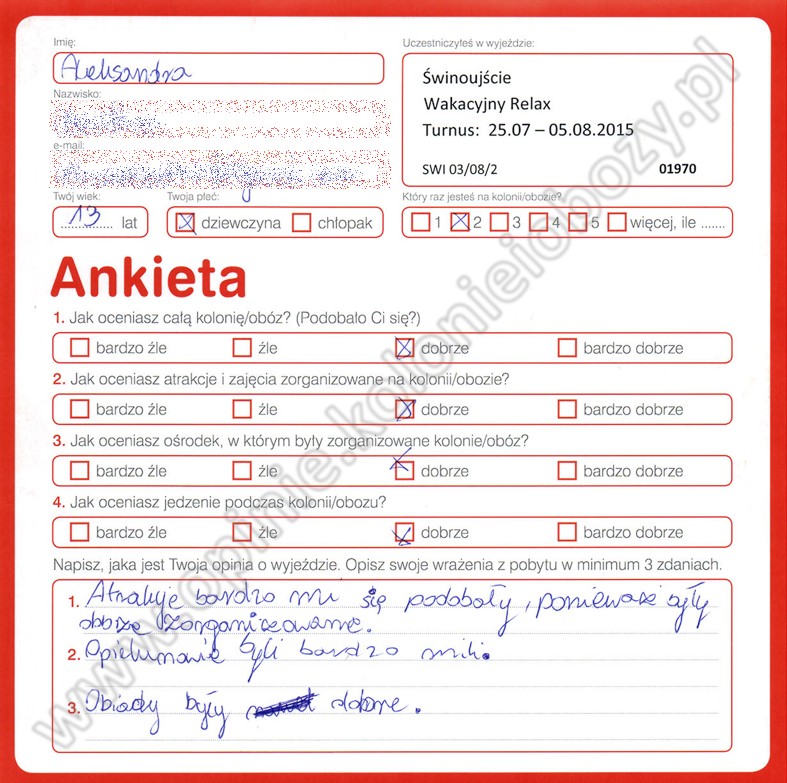 Imię:
Aleksandra
Uczestniczyłeś w wyjeździe:
Świnoujście
Wakacyjny Relax
Turnus: 25.07 – 05.08.2015
SWI 03/08/2 01970
Nazwisko:
e-mail:
Twój wiek:
13 lat
Twoja płeć:
dziewczyna chłopak
Który raz jesteś na kolonii/obozie?
1 2 3 4 5 więcej, ile .......
Ankieta
1. Jak oceniasz całą kolonię/obóz? (Podobało Ci się?)
bardzo źle źle dobrze bardzo dobrze
2. Jak oceniasz atrakcje i zajęcia zorganizowane na kolonii/obozie?
bardzo źle źle dobrze bardzo dobrze
3. Jak oceniasz ośrodek, w którym były zorganizowane kolonie/obóz?
bardzo źle źle dobrze bardzo dobrze
4. Jak oceniasz jedzenie podczas kolonii/obozu?
bardzo źle źle dobrze bardzo dobrze
Napisz, jaka jest Twoja opinia o wyjeździe. Opisz swoje wrażenia z pobytu w minimum 3 zdaniach.
1. Atrakcje bardzo mi się podobały, ponieważ były
dobrze zorganizowane.
2. Opiekunowie byli bardzo mili.
3. Obiady były dobre.
www.opinie.kolonieiobozy.pl